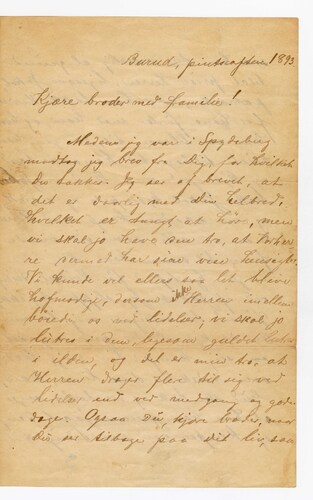 Burud, pintseaften 1893
Kjære broder med familie!
Medens jeg var i Spydeberg
modtog jeg brev fra Dig, for hvilket
Du takkes. Jeg saa af brevet, at
det er daarlig med Din helbred,
hvilket er tungt at høre, men
vi skal jo have den tro, at Herren
dermed har sine vise hensigter.
Vi kunde vel ellers saa let blive
hofmodige, dersom ikke Herren imellem
bøiede os ved lidelser; vi skal jo
lutres i dem, ligesom guldet lutres
i ilden, og det er min tro, at
Herren drager flere til sig ved
lidelser end ved medgang og gode
dage. Ogsaa Du, kjære broder, naar
Du ser tilbage paa dit liv, saa